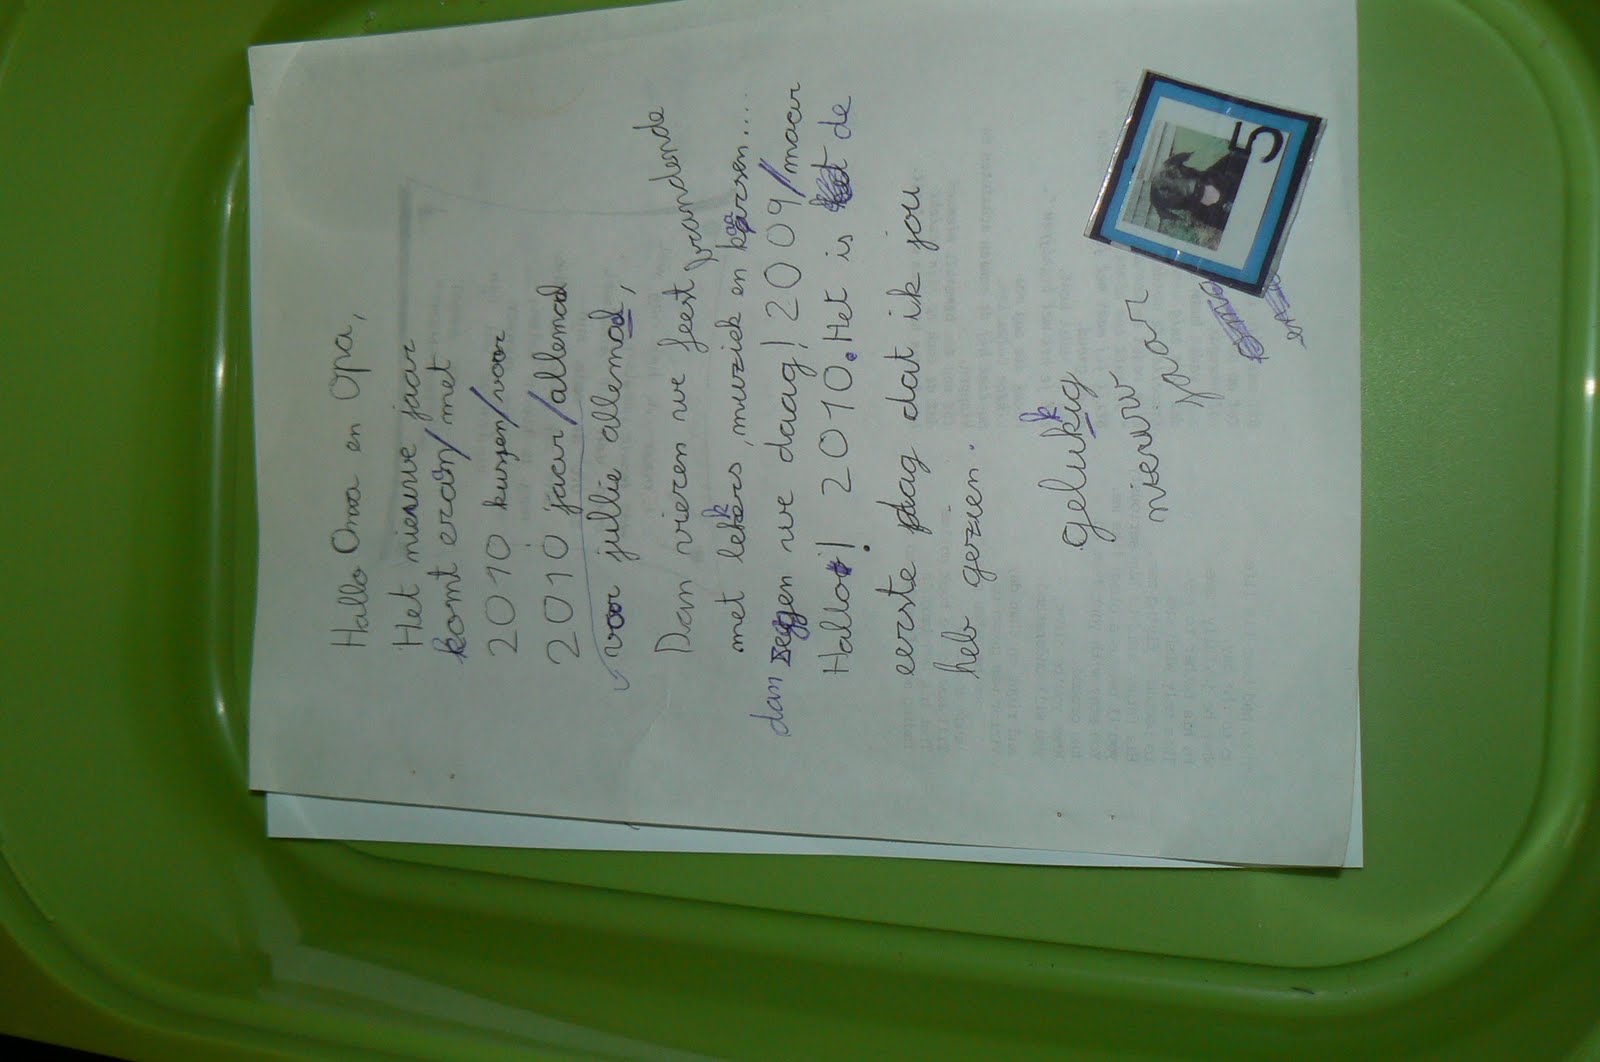 Hallo Oma en Opa,
Het nieuwe jaar
komt eraan/met
2010 kussen/voor
2010 jaar/allemaal
voor jullie allemaal,
Dan vieren we feest brandende
met lekkers, muziek en kaarsen....
dan zeggen we daag! 2009/maar
Hallo! 2010. Het is de
eerste dag dat ik jou
heb gezien.
gelukkig
nieuw
jaar
5